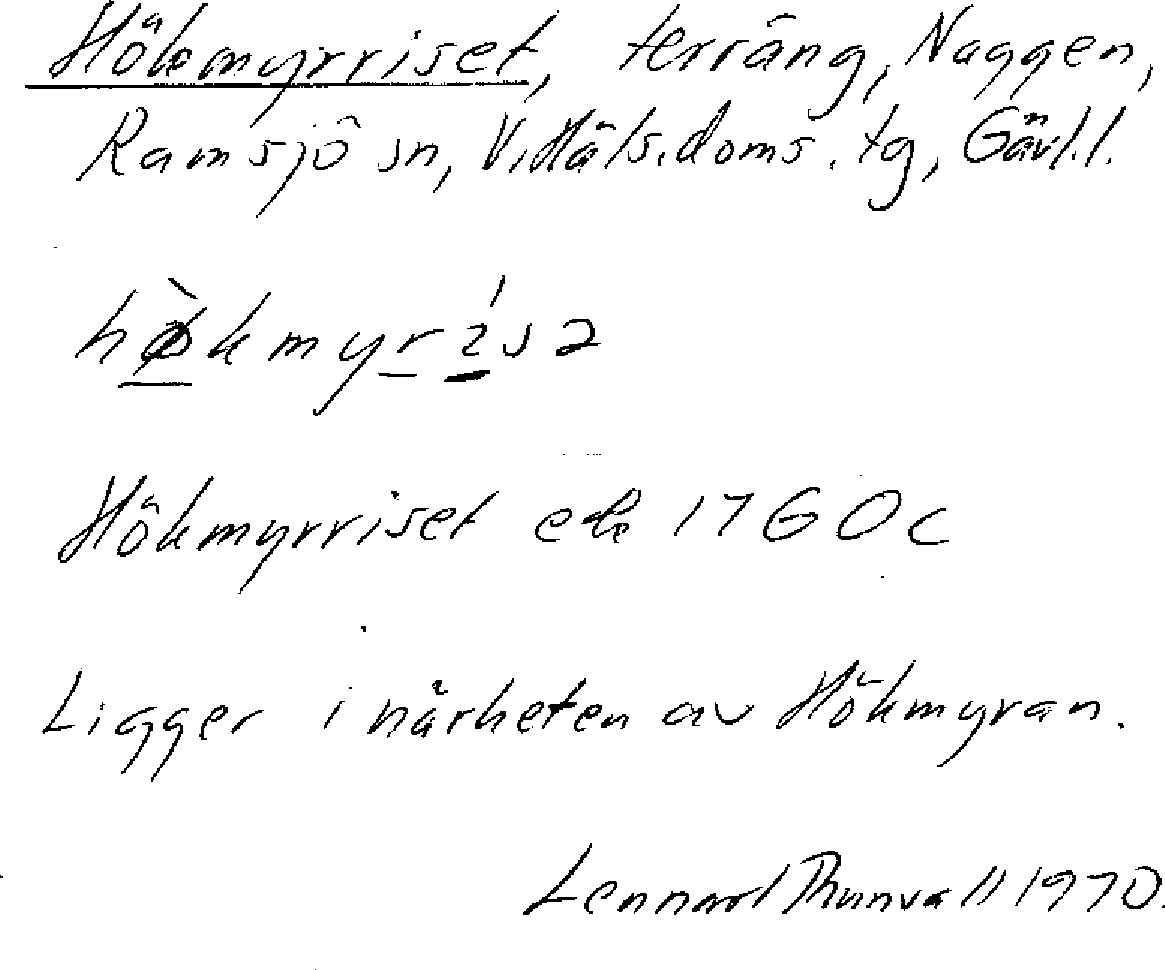 Hökmyrriset, terräng, Naggen,
Ramsjö sn, V. Häls. doms. tg, Gävl. l.
hø̀kmyrísə
Hökmyrriset ek 1760 c
Ligger i närheten av Hökmyran.
Lennart Thunvall 1970.